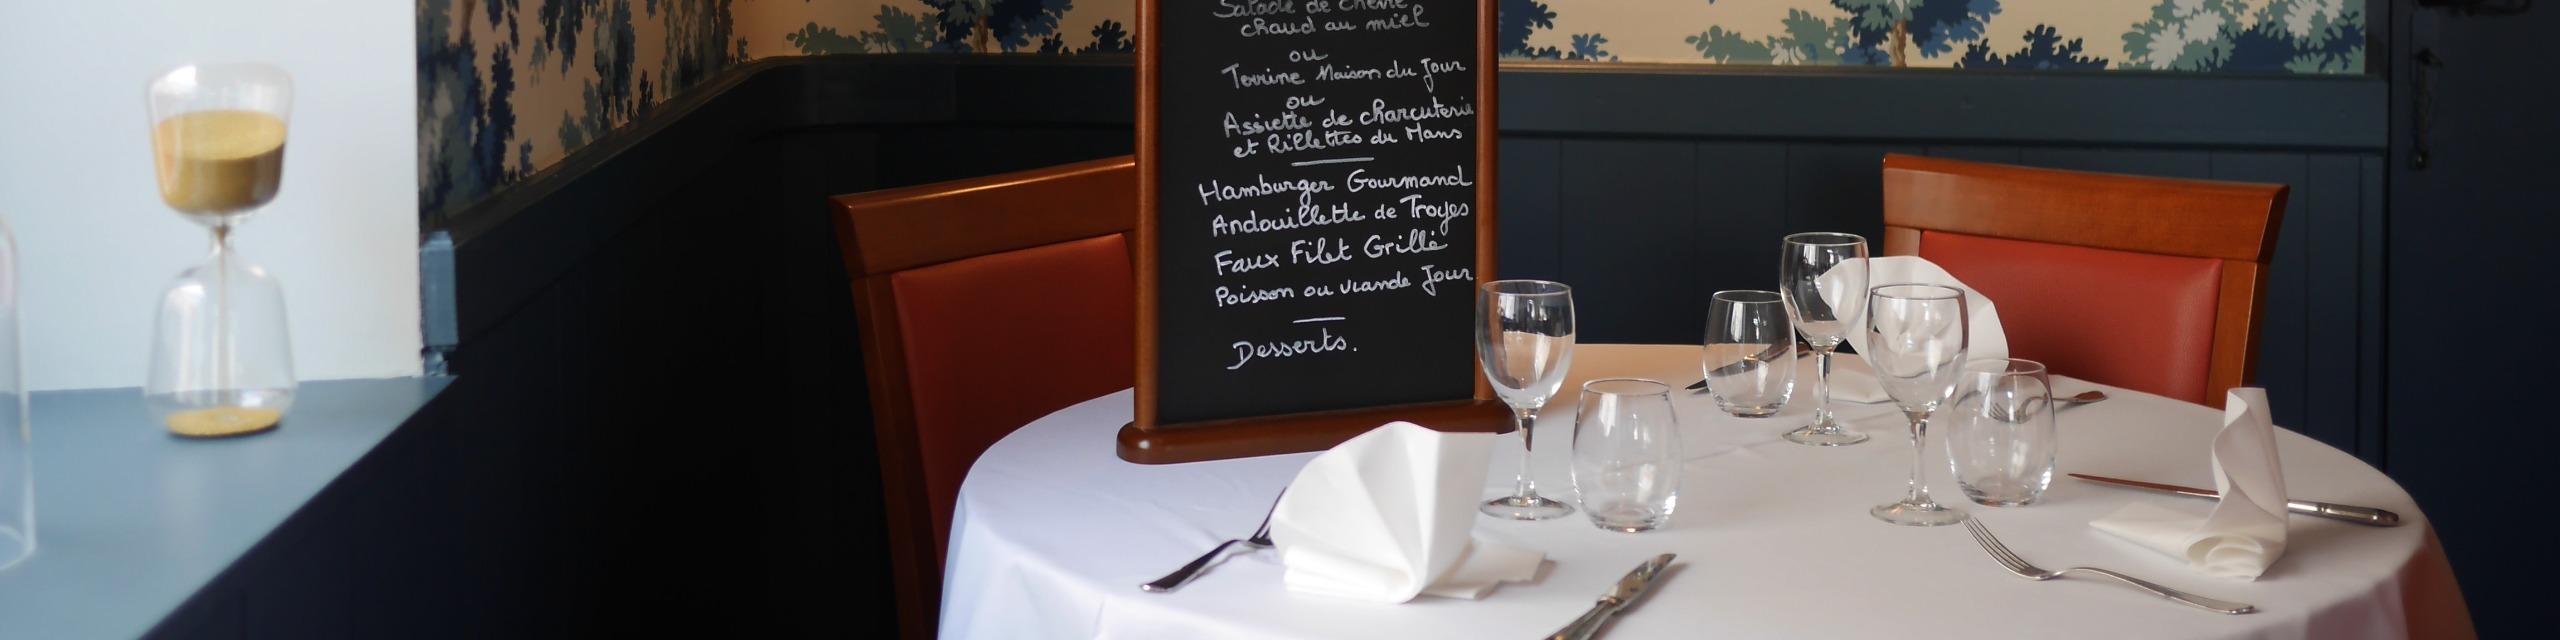 Salade de chèvre
chaud au miel
ou
Terrine Maison du Jour
ou
Assiette de charcuterie
et Rillettes du Mans
Hamburger Gourmand
Andouillette de Troyes
Faux Filet Grillé
Poisson ou viande Jour
Desserts.